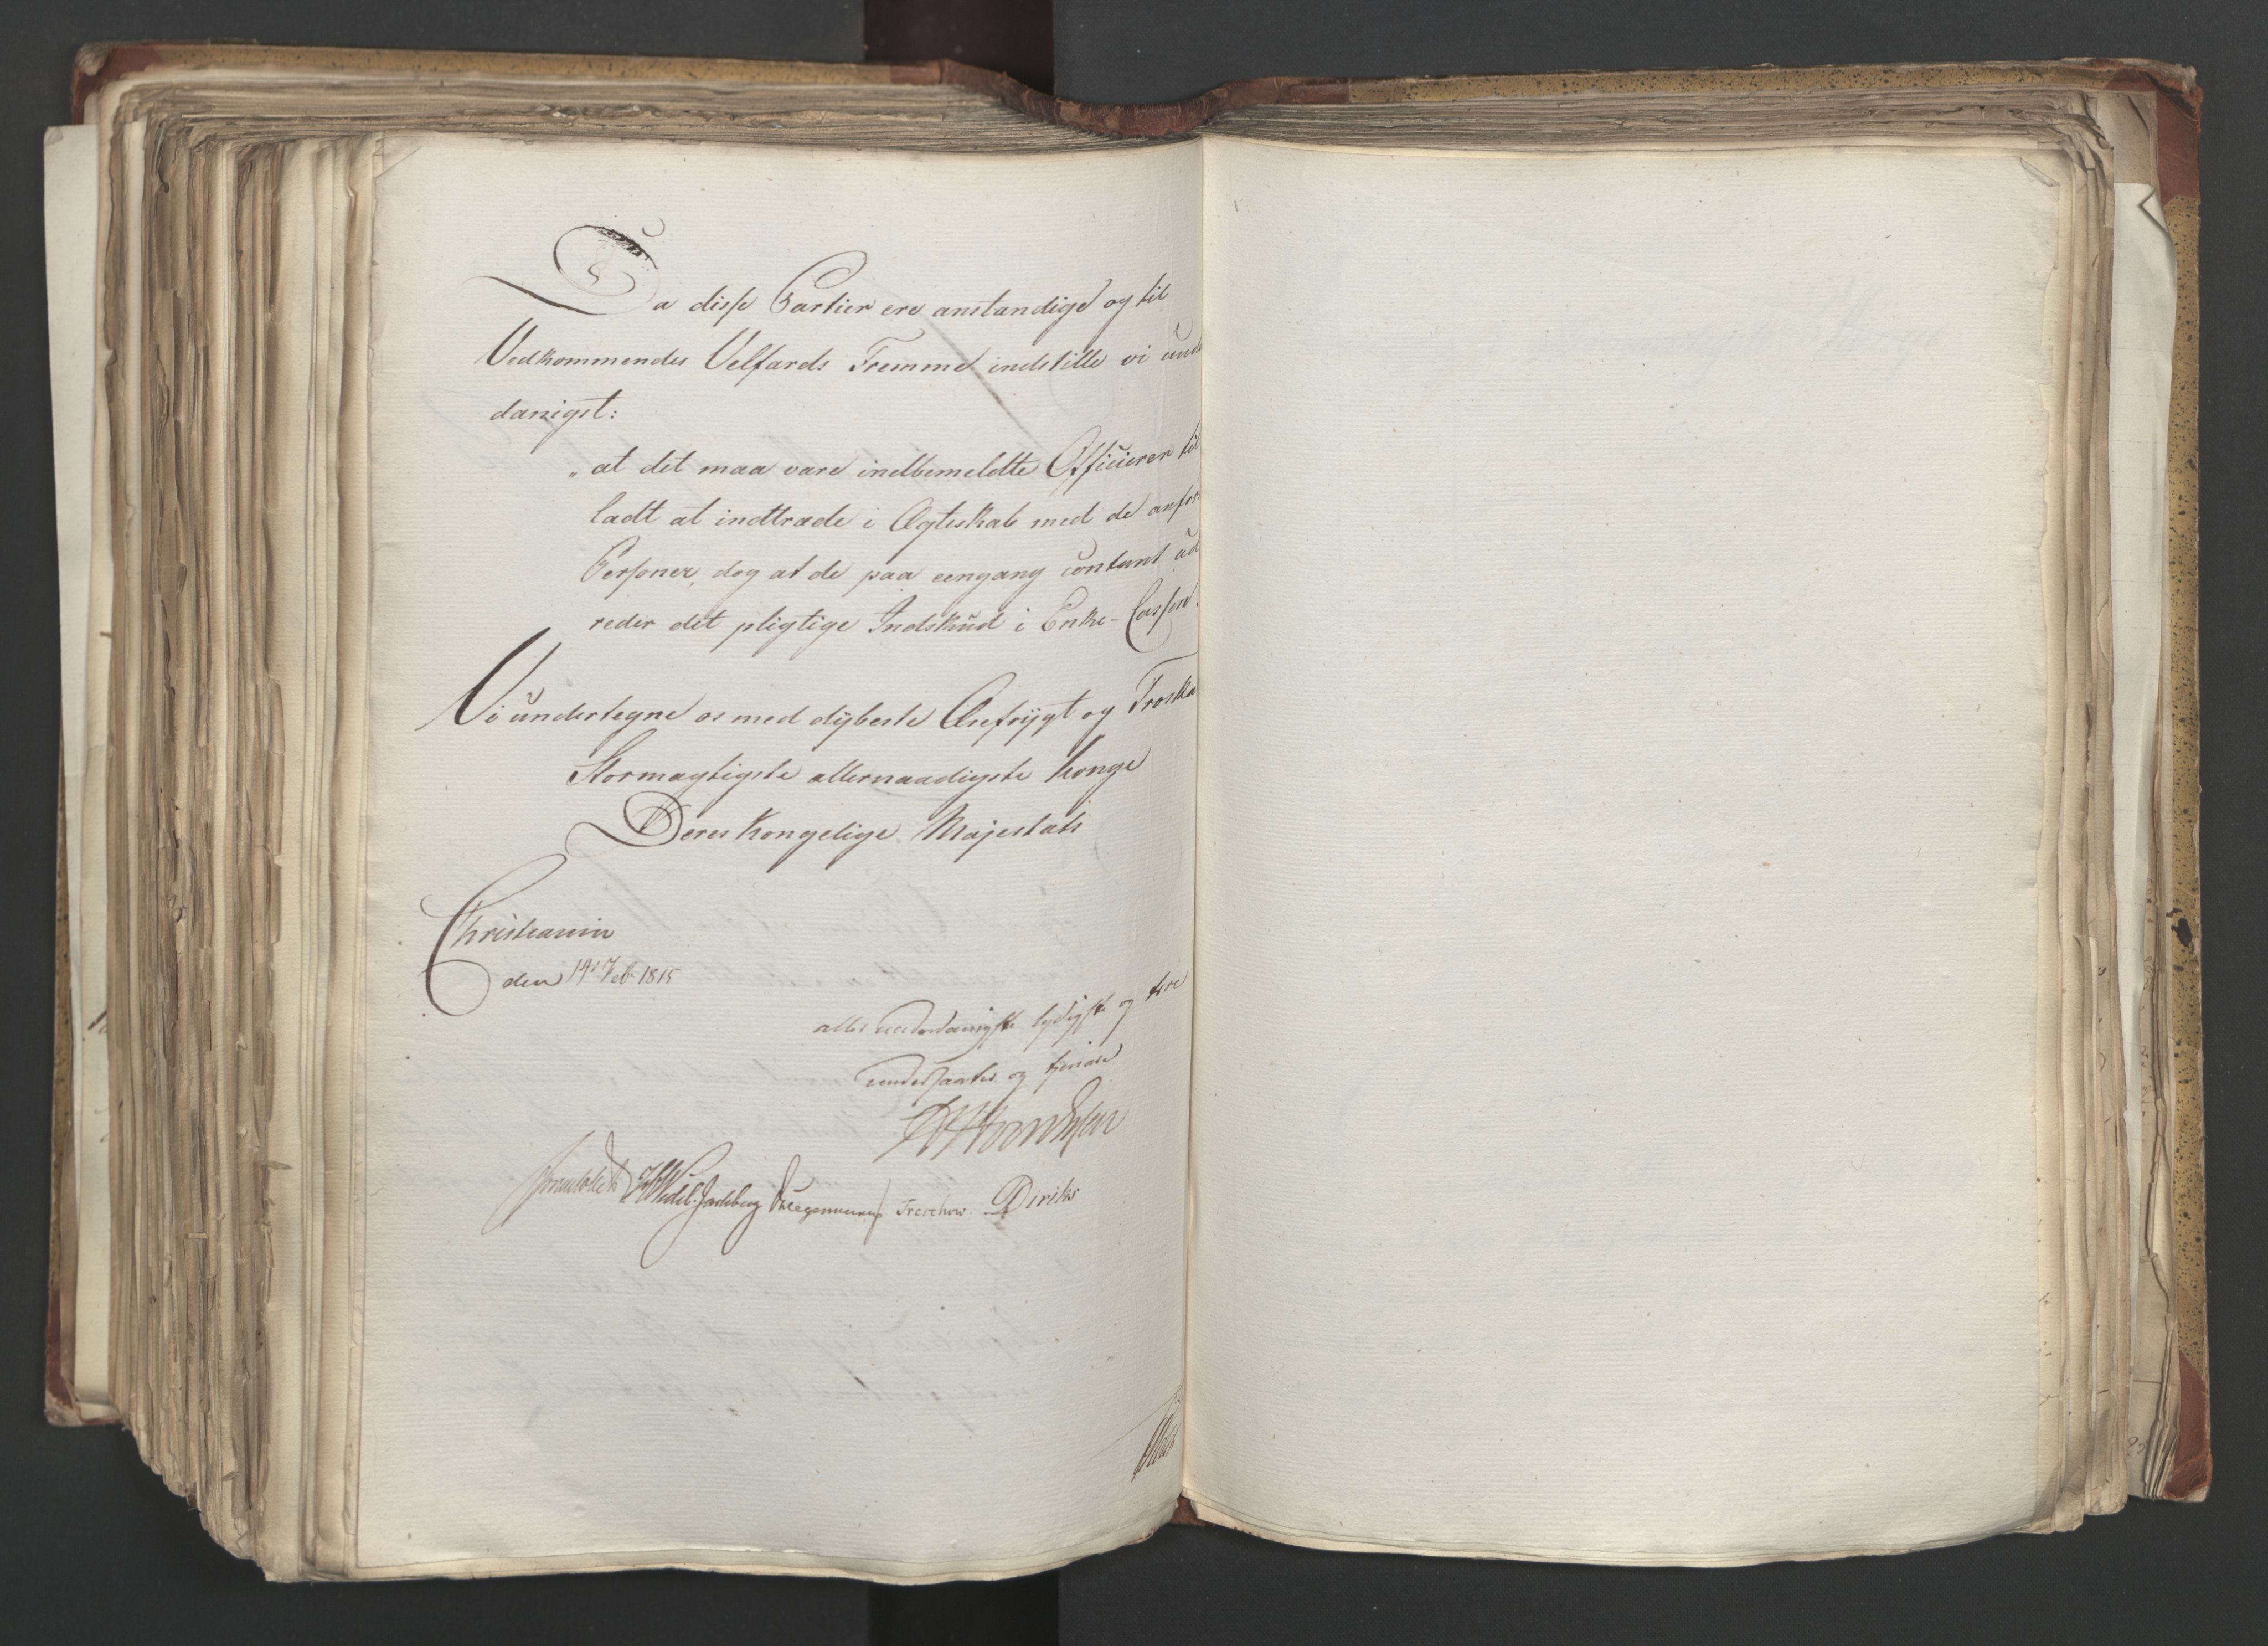 Da disse Partier ere anstændige og til
Vedkommendes Velfærds Fremme indstille vi und
danigst:
„at det maa være indbemeldte Officierer til
ladt at indtræde i Ægteskab med de anfør
Personer, dog at de paa eengang contant ud
reder det pligtige Indskud i Enke-Cassen.
Vi undertegne os med dybeste Ærefrygt og Troska
Stormægtigste allernaadigste Konge
Deres Kongelige Majestæts
Christiania
den 14de Feb 1815
allerunderdanigste lydigste og troe
undersaatter og tjenere
Sommerfeldt HWedel-Jarlsberg Krogh Treschow Diriks